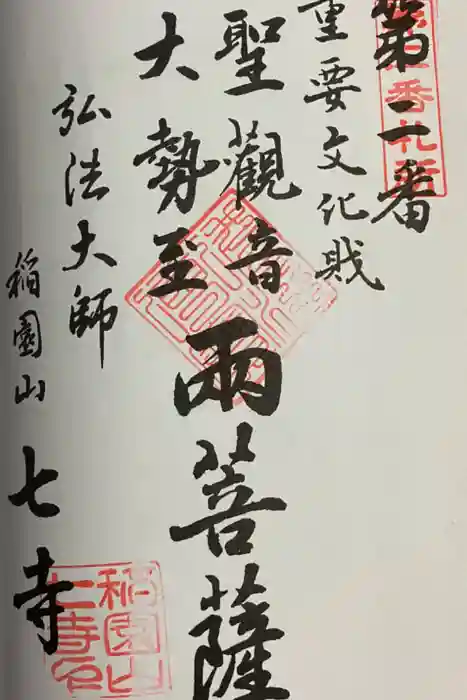 第二番
重要文化財
聖觀音
大勢至
兩菩薩
弘法大師
稲園山
七寺
番札所
稲園山
七寺印